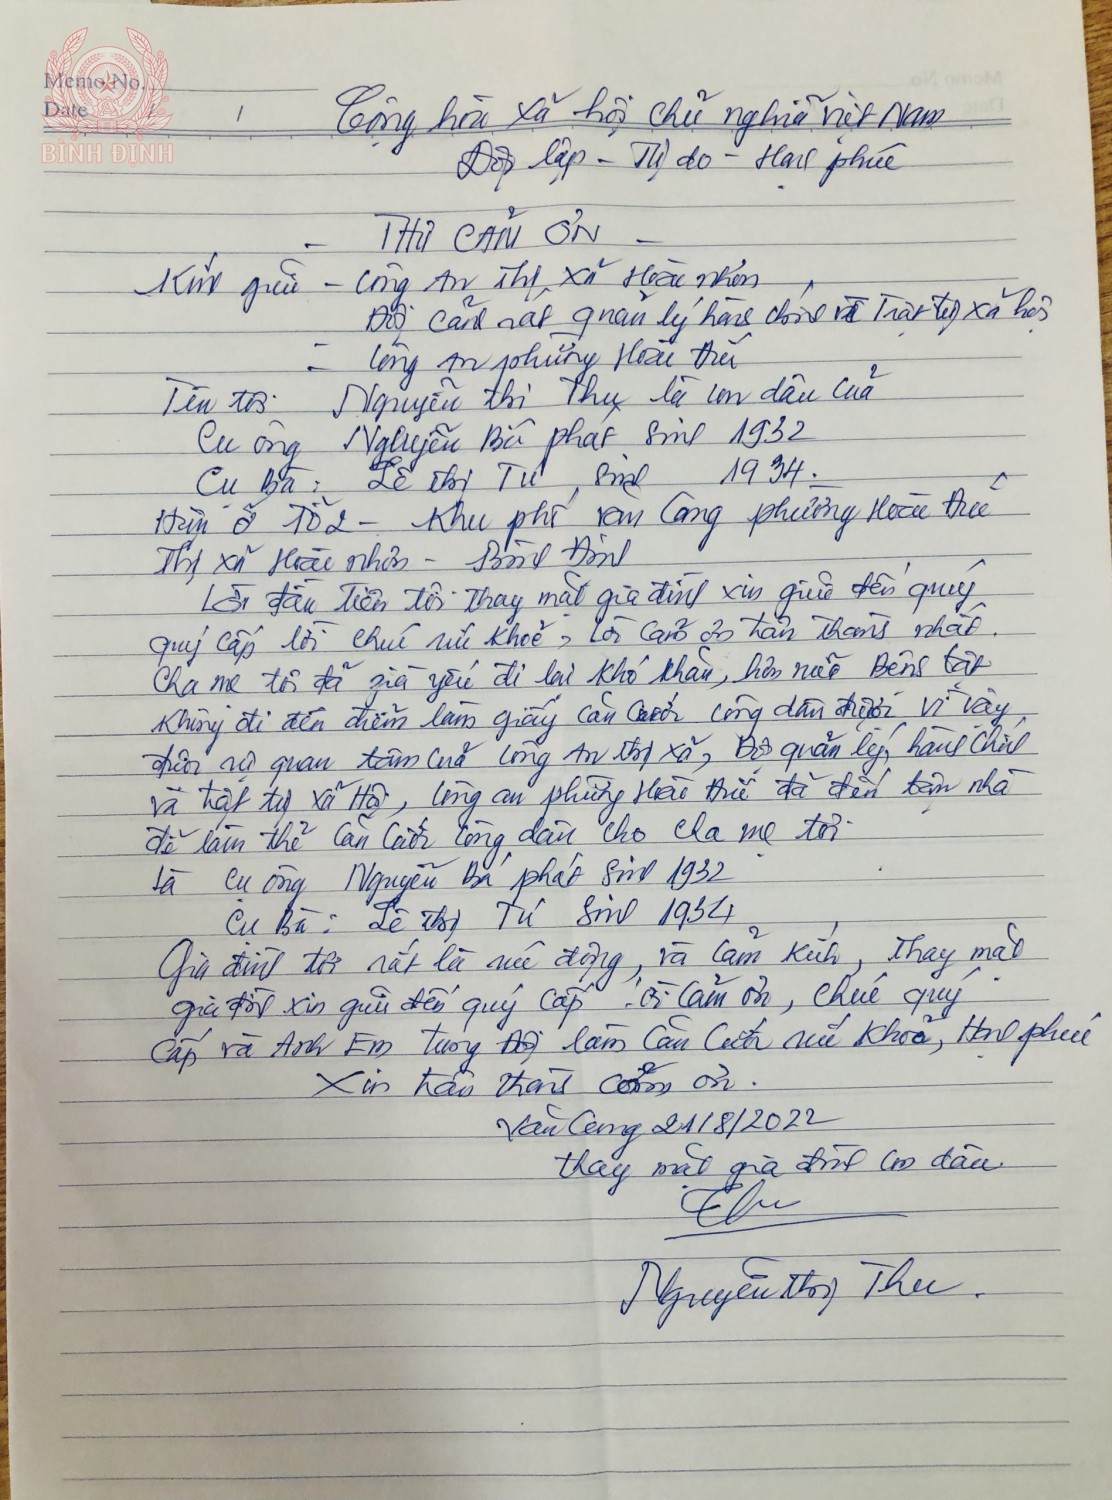 Memo No.
Date
BÌNH ĐỊNH
Cộng hòa xã hội chủ nghĩa việt Nam
Độc lập - Tự do - Hạnh phúc
- THƯ CẢM ƠN -
Kính gửi - Công An Thị xã Hoài nhơn
Đội cảnh sát quản lý hành chính về Trật tự xã hội
- Công An phường Hoài Đức
Tên tôi Nguyễn thị Thu là con dâu của
Cụ ông Nguyễn Bá phát sinh 1932
Cụ Bà: Lê thị Tư, sinh 1934.
Hiện ở Tổ 2 - Khu phố văn Cang phường Hoài Đức
Thị xã Hoài nhơn - Bình Định
Lời đầu Tiên tôi thay mặt gia đình xin gửi đến quý
quý cấp lời chúc sức khoẻ, lời cảm ơn chân thành nhất.
Cha mẹ tôi đã già yếu đi lại khó khăn, hơn nữa Bệnh tật
không đi đến điểm làm giấy căn cước công dân được vì vậy
được sự quan tâm của Công An thị xã, Đội quản lý hành chính
và trật tự xã Hội, Công an phường Hoài Đức đã đến tận nhà
để làm thẻ Căn Cước Công dân cho cha mẹ tôi
là cụ ông Nguyễn Bá phát sinh 1932
Cụ Bà: Lê thị Tư sinh 1934
Gia đình tôi rất là xúc động, và Cảm kích, thay mặt
gia đình xin gửi đến quý cấp lời Cảm ơn, chúc quý
Cấp và Anh Em trong Đội làm Căn Cước sức khoẻ, Hạnh phúc
Xin chân thành cảm ơn.
Văn Cang 21/8/2022
thay mặt gia đình con dâu
Thu
Nguyễn thị Thu.